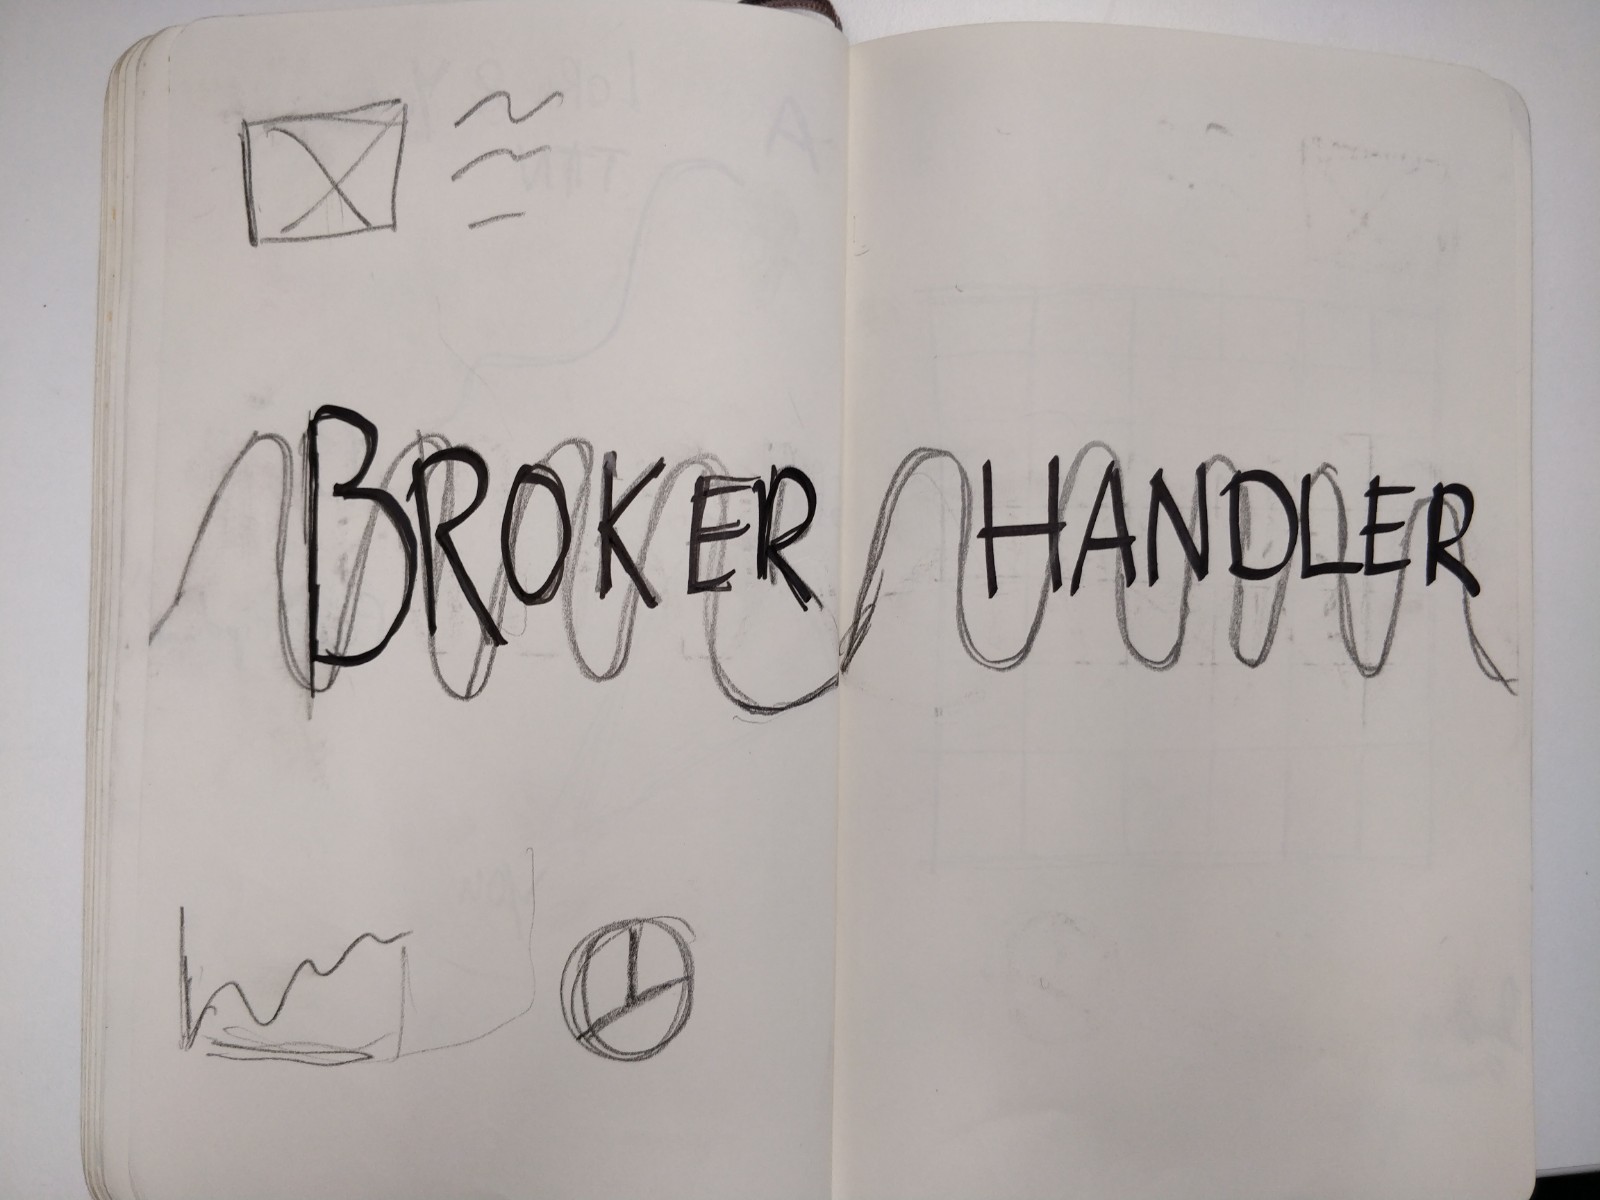 BROKER HANDLER